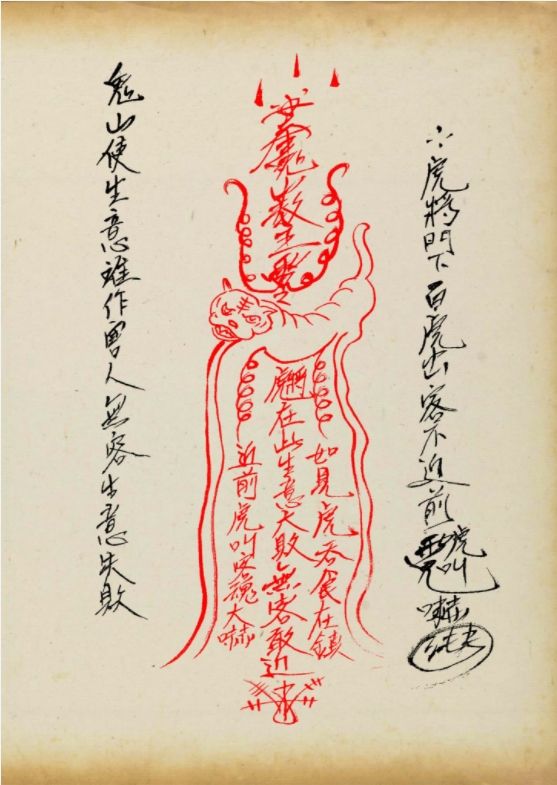 虎將門下百虎出客不近前
虎叫嚇
山教主靈
如見虎吞食在鎮
在此生意大敗無客敢近
近前虎叫客魂大嚇
鬼山使生意誰作人無客生意失敗